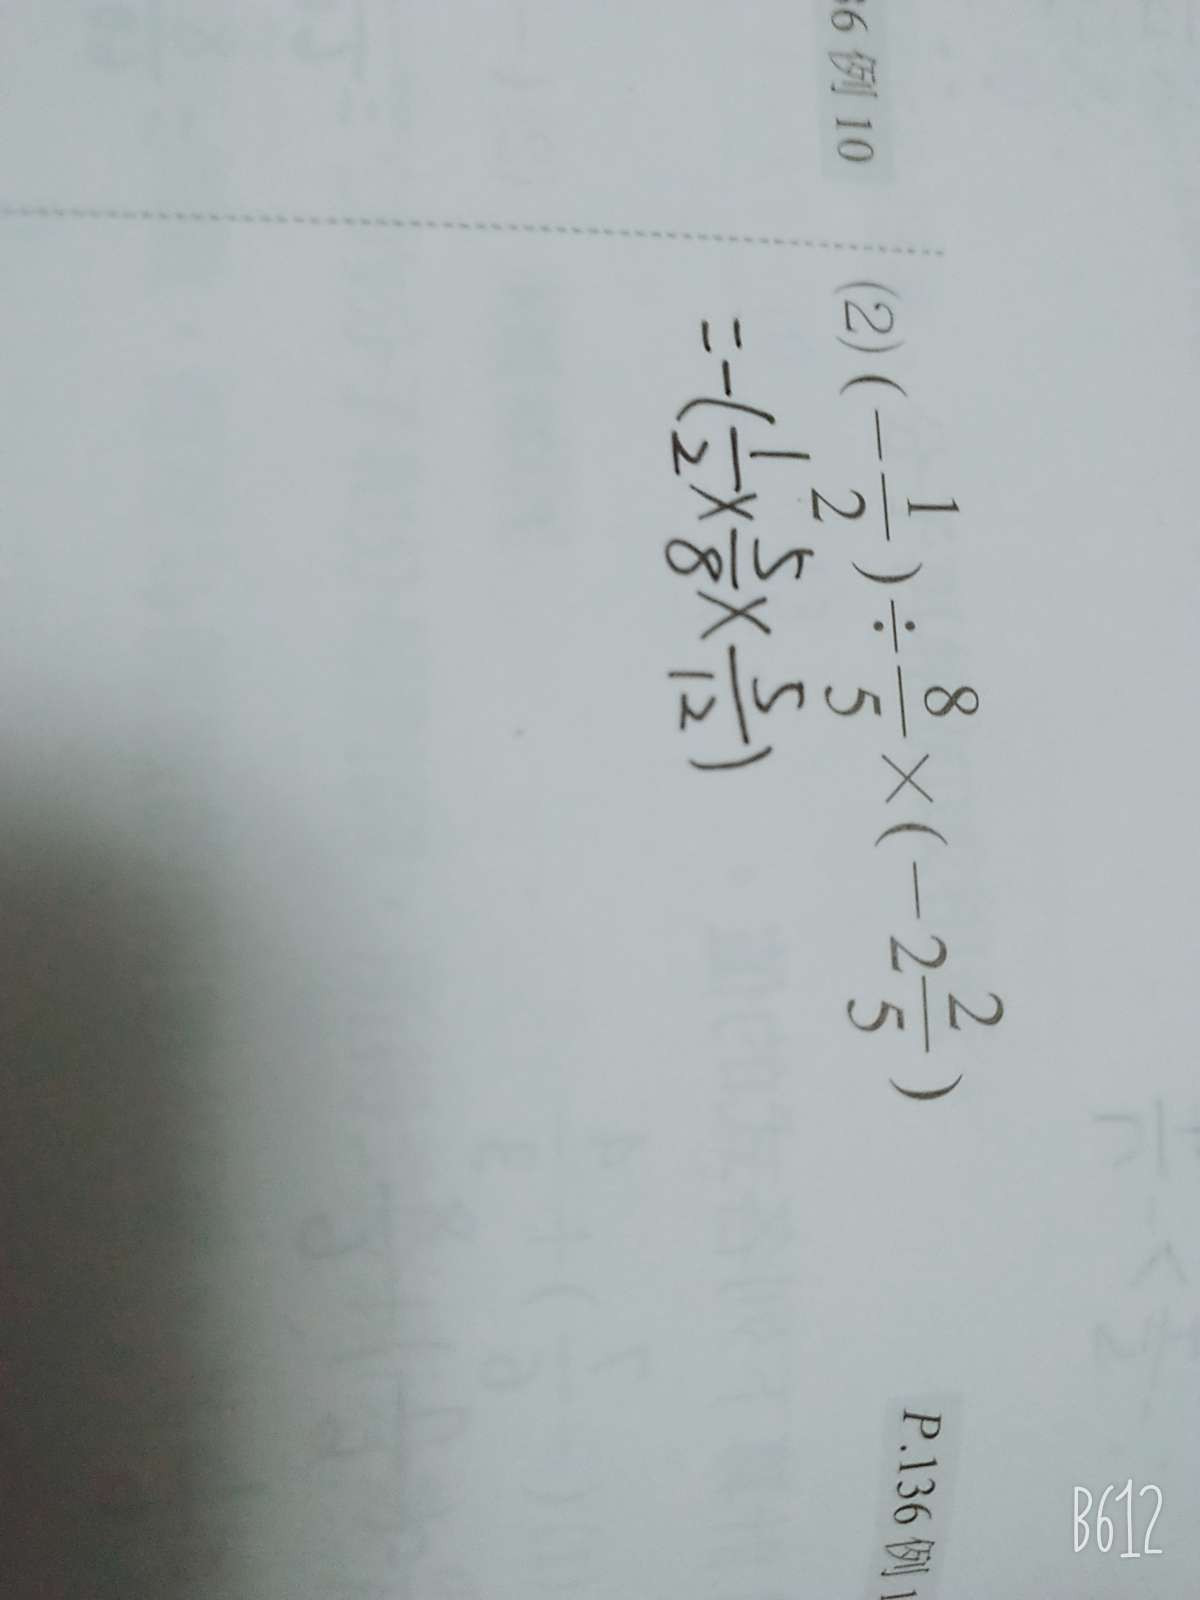 36 例 10
(2) (-1/2) ÷ 8/5 × (-2 2/5)
= -(1/2 × 5/8 × 5/12)
P.136 例 1
B612